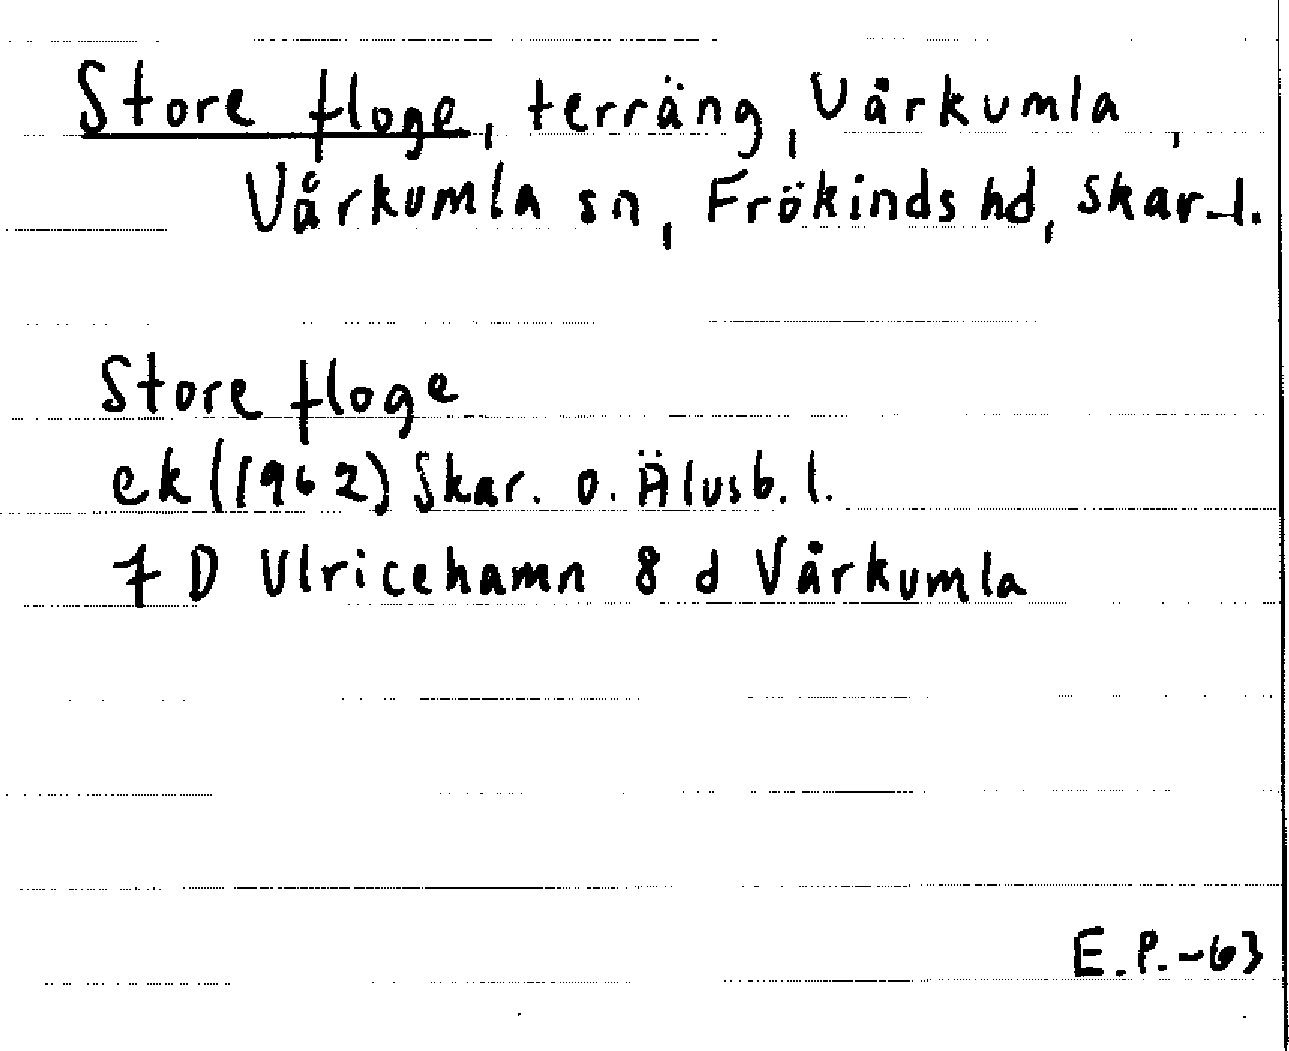 Store floge, terräng, Vårkumla,
Vårkumla sn, Frökinds hd, Skar. l.
Store floge
ek (1962) Skar. o. Älvsb. l.
7 D Ulricehamn 8 d Vårkumla
E.P.-63